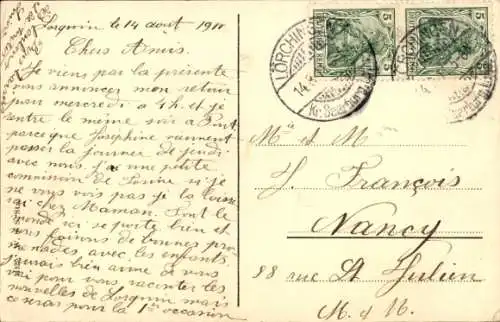 Lorquin le 14 août 1911
Chers Amis.
Je viens par la présente
vous annoncer mon retour
pour mercredi a 4h et je
rentre le même soir a Pont
parce que Josephine viennent
passer la journée de jeudi
avec nous. J'ai une petite
commission de si je
ne vous vois pas je la laisse
rai chez Maman. Tout le
monde ici se porte bien et
nous faisons de bonnes pro
me nades avec les enfants.
J'aurais bien aimé de vous
voir pour vous raconter les
nouvelles de Lorquin mais
ce sera pour la 1ère occasion
LORCHIN
14.8
Kr. Saarburg
5
5
Me et M
J. François
Nancy
88 rue St Julien
M. et M.